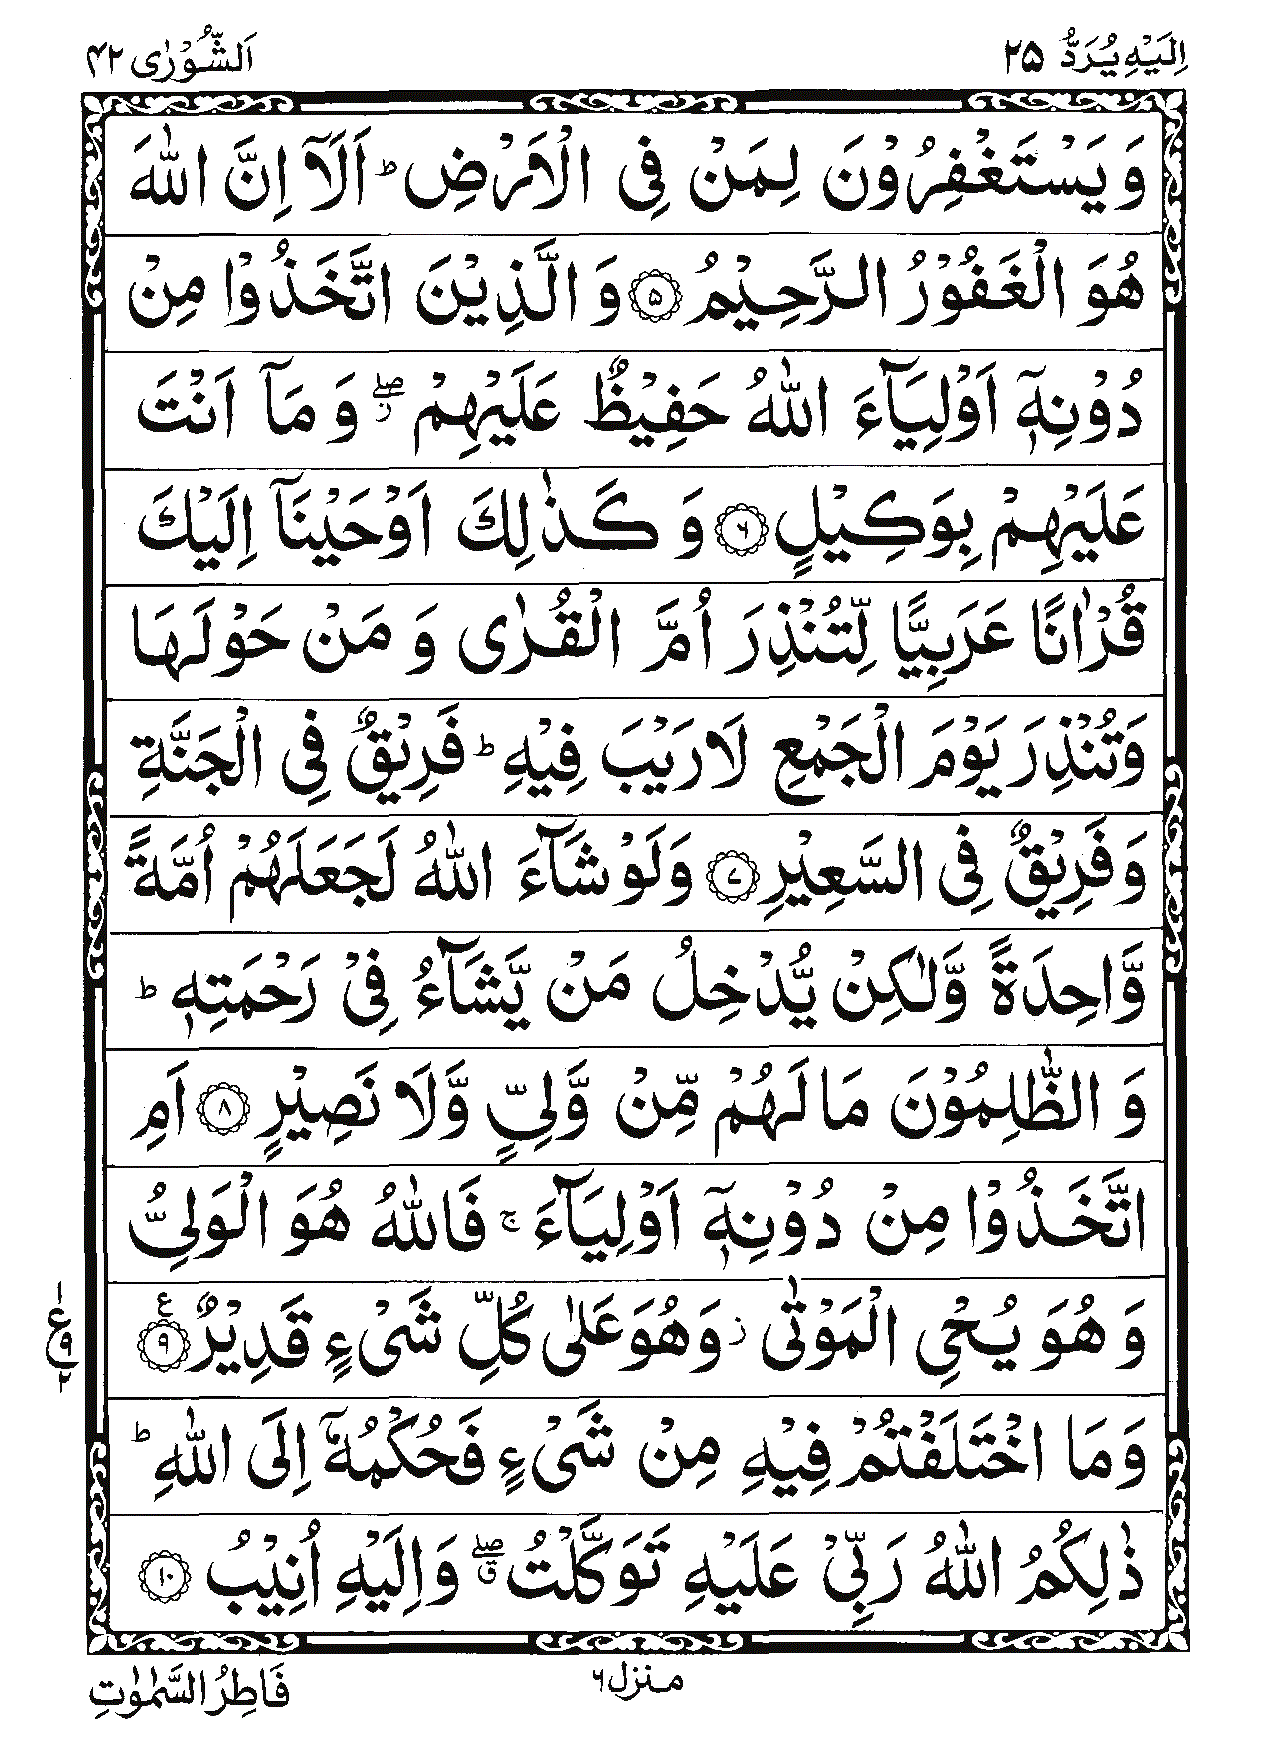 اِلَيْهِ يُرَدُّ ۲۵
اَلشُّوْرٰى ۴۲
وَ يَسْتَغْفِرُوْنَ لِمَنْ فِى الْاَرْضِ ؕ اَلَاۤ اِنَّ اللّٰهَ
هُوَ الْغَفُوْرُ الرَّحِيْمُ ۵ وَ الَّذِيْنَ اتَّخَذُوْا مِنْ
دُوْنِهٖۤ اَوْلِيَآءَ اللّٰهُ حَفِيْظٌ عَلَيْهِمْ ۖؗ وَ مَاۤ اَنْتَ
عَلَيْهِمْ بِوَكِيْلٍ ۶ وَ كَذٰلِكَ اَوْحَيْنَاۤ اِلَيْكَ
قُرْاٰنًا عَرَبِيًّا لِّتُنْذِرَ اُمَّ الْقُرٰى وَ مَنْ حَوْلَهَا
وَتُنْذِرَ يَوْمَ الْجَمْعِ لَا رَيْبَ فِيْهِ ؕ فَرِيْقٌ فِى الْجَنَّةِ
وَفَرِيْقٌ فِى السَّعِيْرِ ۷ وَلَوْ شَآءَ اللّٰهُ لَجَعَلَهُمْ اُمَّةً
وَّاحِدَةً وَّلٰكِنْ يُّدْخِلُ مَنْ يَّشَآءُ فِىْ رَحْمَتِهٖ ؕ
وَ الظّٰلِمُوْنَ مَا لَهُمْ مِّنْ وَّلِىٍّ وَّلَا نَصِيْرٍ ۸ اَمِ
اتَّخَذُوْا مِنْ دُوْنِهٖۤ اَوْلِيَآءَ ۚ فَاللّٰهُ هُوَ الْوَلِىُّ
وَ هُوَ يُحْىِ الْمَوْتٰى ؗ وَهُوَ عَلٰى كُلِّ شَىْءٍ قَدِيْرٌ ۹ ع
۱ ع ۹ ۲
وَمَا اخْتَلَفْتُمْ فِيْهِ مِنْ شَىْءٍ فَحُكْمُهٗۤ اِلَى اللّٰهِ ؕ
ذٰلِكُمُ اللّٰهُ رَبِّىْ عَلَيْهِ تَوَكَّلْتُ ۖۗ وَاِلَيْهِ اُنِيْبُ ۱۰
منزل ۶
فَاطِرُ السَّمٰوٰتِ